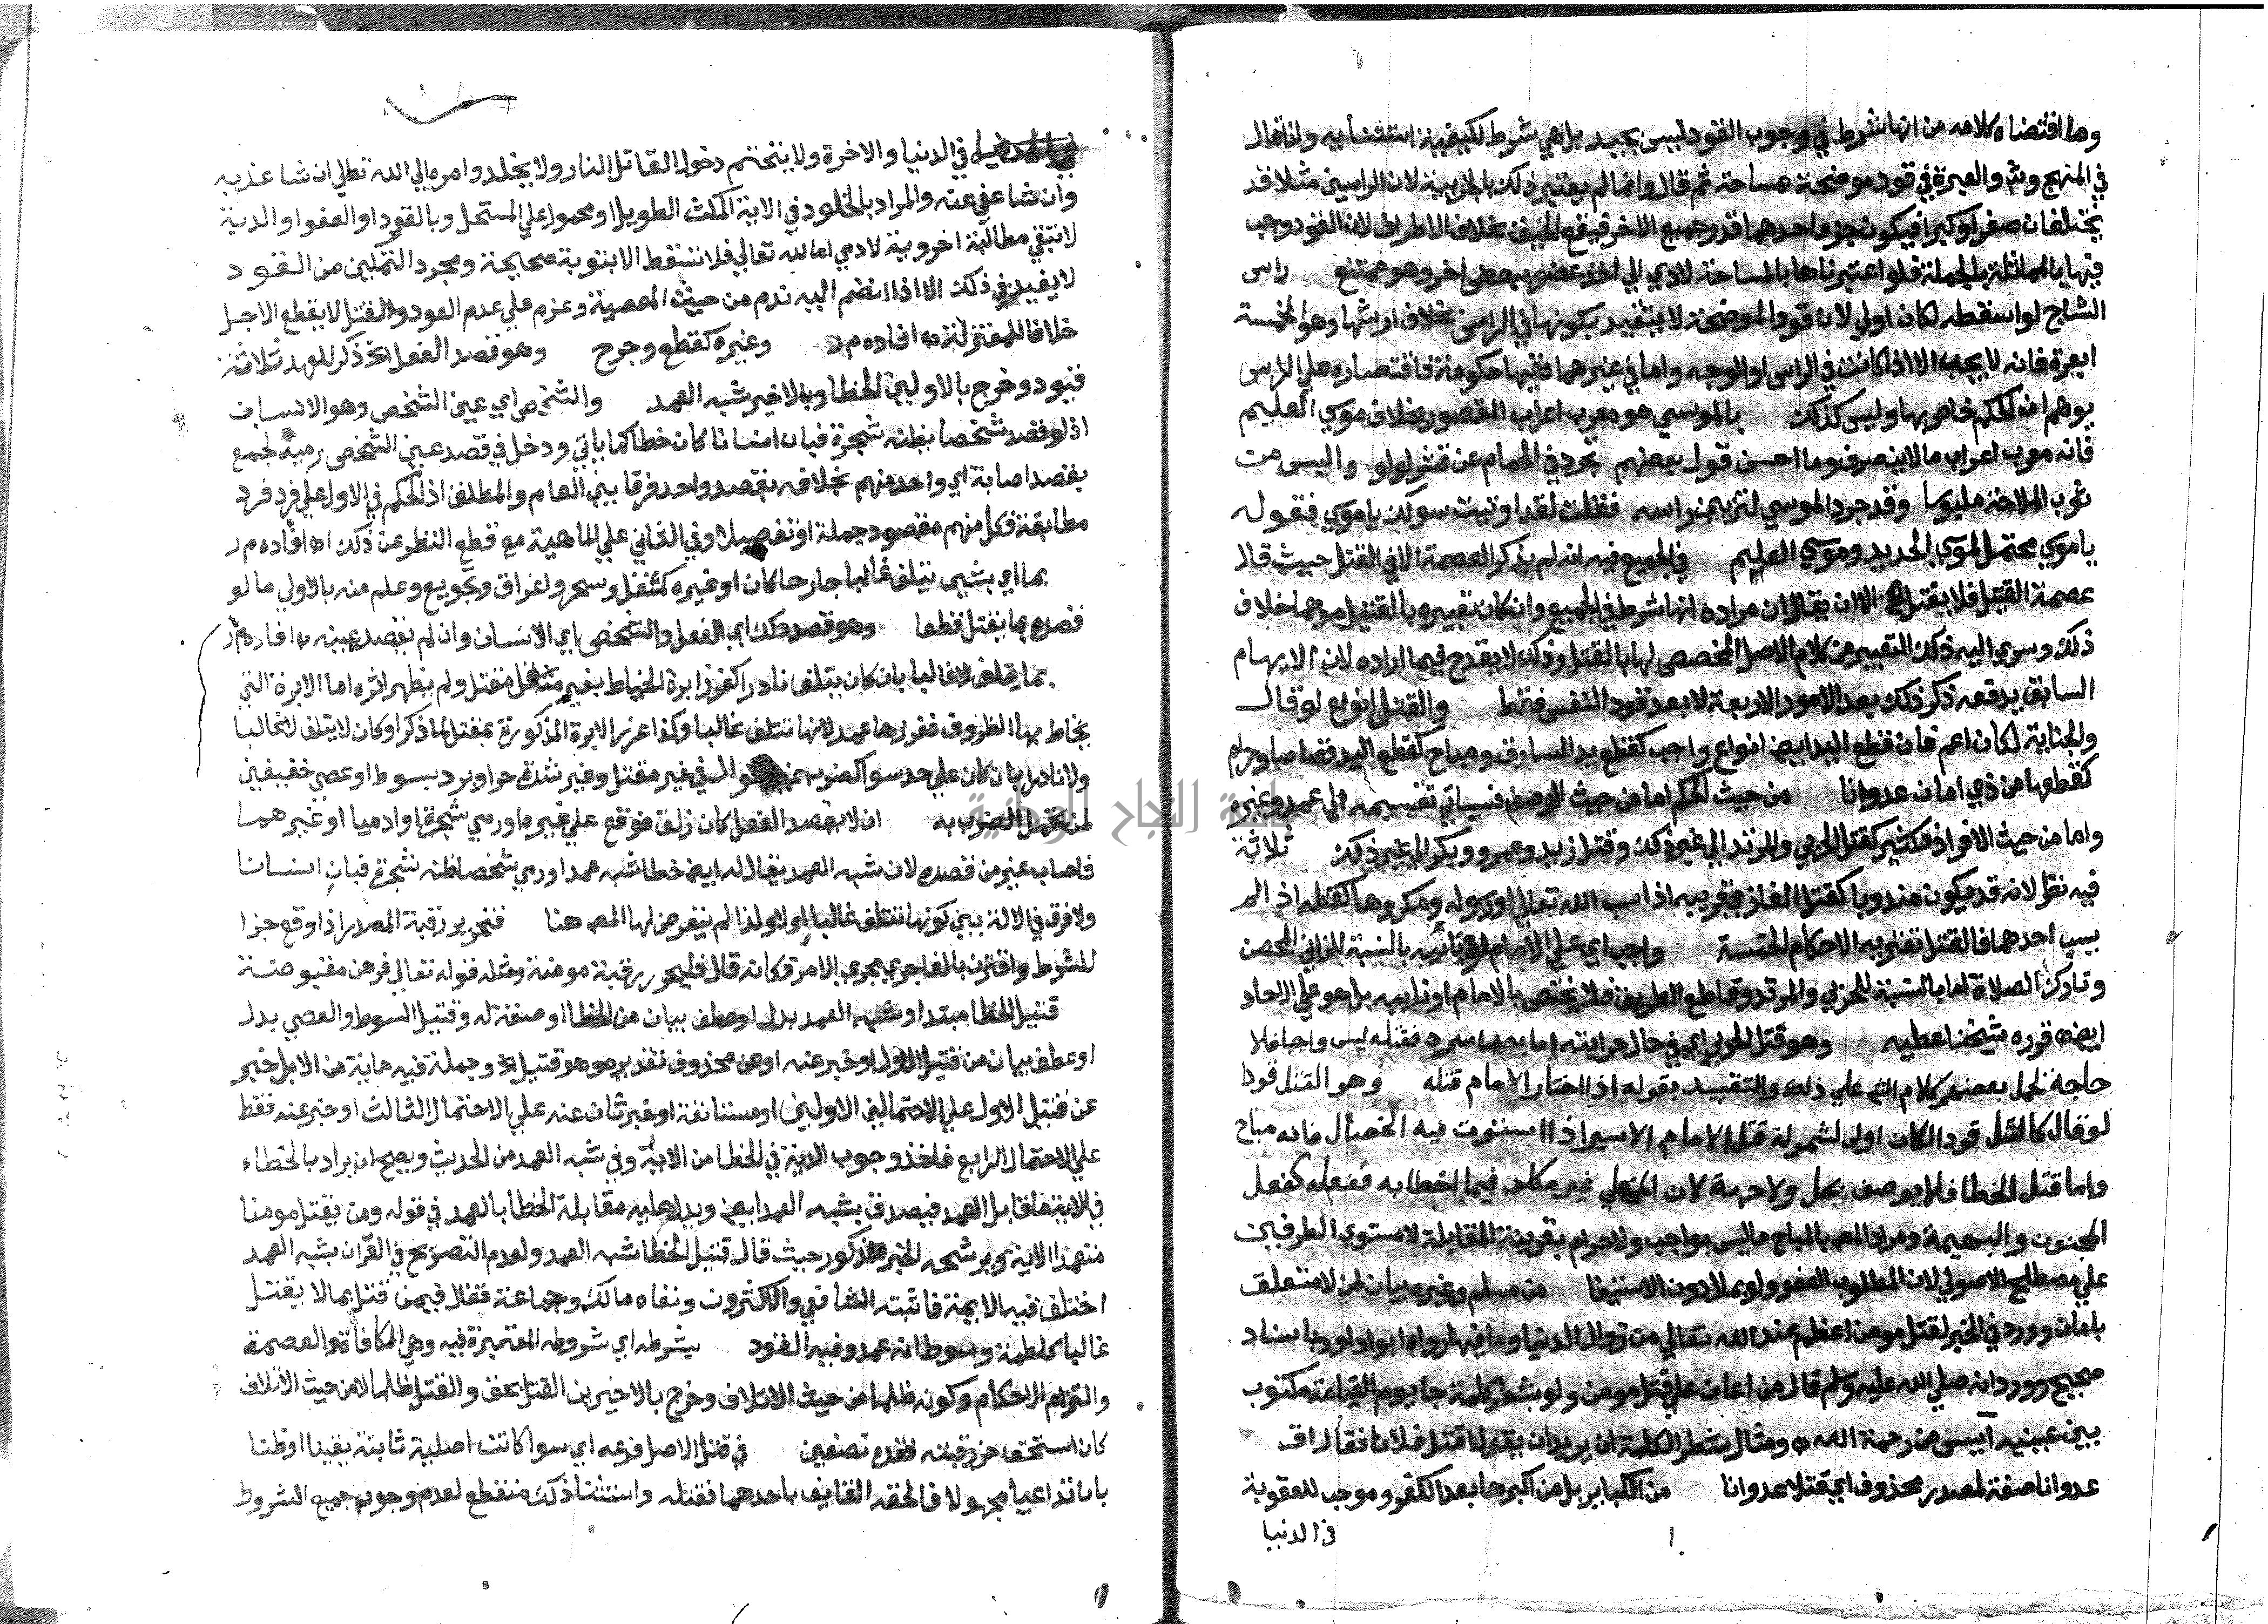 وما اقتضاه كلامه من انها شرط في وجوب القود ليس بجيد بل هي شرط لكيفية استيفائه ولذا قال
في المنهج وشرحه والعبرة في قود موضحة بمساحة ثم قال وانما لم يعتبر ذلك بالجزئية لان الراسين مثلا قد
يختلفان صغرا وكبرا فيكون جزء احدهما قدر جميع الاخر فيقع الحيف بخلاف الاطراف لان القود وجب
فيها بالمماثلة بالجملة فلو اعتبرناها بالمساحة لادي الي اخذ عضو ببعض اخر وهو ممتنع راس
الشاج لو اسقطه لكان اولي لان قود الموضحة لا يتقيد بكونها في الراس بخلاف ارشها وهو الخمسة
ابعرة فانه لا يجب الا اذا كانت في الراس او الوجه واما في غيرهما ففيها حكومة فاقتصاره علي الراس
يوهم ان الحكم خاص بها وليس كذلك بالموسي هو معرب اعراب المقصور بخلاف موسي العليم
فانه معرب اعراب ما لا ينصرف وما احسن قول بعضهم تجرد في الحمام عن قشر لولو والبس من
ثوب الملاحة ملبوسا وقد جرد الموسي لتزيين راسه فقلت لقد اوتيت سولك يا موسي فقوله
يا موسي محتمل لموسي الحديد وموسي العليم في الجميع فيه انه لم يذكر العصمة الا في القتل حيث قال
عصمة القتيل فلا يقتل الا ان يقال ان مراده انها شرط في الجميع وان كان تعبيره بالقتيل موهما خلاف
ذلك وسري اليه ذلك التعبير من كلام الاصل المخصص لها بالقتل وذلك لا يقدح فيما اراده لان الايهام
السابق يدفعه ذكر ذلك بعد الامور الاربعة لا بعد قود النفس فقط والقتل انواع لو قال
والجناية لكان اعم فان قطع اليد ايضا انواع واجب كقطع يد السارق ومباح كقطع اليد قصاصا وحرام
كقطعها من ذي امان عدوانا من حيث الحكم اما من حيث الوصف فسياتي تقسيمه الي عمد وغيره
واما من حيث الافراد فكثير كقتل الحربي والمرتد الي غير ذلك وقتل زيد وعمرو وبكر الي غير ذلك ثلاثة
فيه نظر لانه قد يكون مندوبا كقتل الغاز قريبه اذا سب الله تعالي او رسوله ومكروها كقتله اذا لم
يسب احدهما فالقتل تعتريه الاحكام الخمسة واجب اي علي الامام او نائبه بالنسبة للزاني المحصن
وتارك الصلاة اما بالنسبة للحربي والمرتد وقاطع الطريق فلا يختص بالامام او نايبه بل هو علي الاحاد
ايضا قرره شيخنا عطيه وهو قتل الحربي اي في حال حرابته اما بعد اسره فقتله ليس واجبا فلا
حاجة لحمل بعضهم كلام الش علي ذلك والتقييد بقوله اذا اختار الامام قتله وهو القتل قودا
لو قال كالقتل قودا لكان اولي لشموله قتل الامام الاسير اذا استوت فيه الخصال فانه مباح
واما قتل الخطا فلا يوصف بحل ولا حرمة لان المخطي غير مكلف فيما اخطا به ففعله كفعل
المجنون والبهيمة ومراد المص بالمباح ما ليس بواجب ولا حرام بقرينة المقابلة لا مستوي الطرفين
علي مصطلح الاصولي لان المطلوب العفو ولو بمال دون الاستيفا من مسلم وغيره بيان لمن لا متعلق
بامان وورد في الخبر لقتل مومن اعظم عند الله تعالي من زوال الدنيا وما فيها رواه ابو داود باسناد
صحيح وورد انه صلي الله عليه وسلم قال من اعان علي قتل مومن ولو بشطر كلمة جا يوم القيامة مكتوب
بين عينيه آيس من رحمة الله ومثال شطر الكلمة ان يريد ان يقول اقتل فلانا فقال اق
عدوانا صفة لمصدر محذوف اي قتلا عدوانا من الكباير بل من اكبرها بعد الكفر وموجب للعقوبة
في الدنيا
في الدنيا والاخرة ولا يتحتم دخول القاتل النار ولا يخلد وامره الي الله تعالي ان شا عذبه
وان شا عفي عنه والمراد بالخلود في الاية المكث الطويل او محمول علي المستحل وبالقود او العفو او الدية
لا تبقي مطالبة اخروية لادمي اما لله تعالي فلا تسقط الا بتوبة صحيحة ومجرد التمكين من القود
لا يفيد في ذلك الا اذا انضم اليه ندم من حيث المعصية وعزم علي عدم العود والقتل لا يقطع الاجل
خلافا للمعتزلة اه افاده م ر وغيره كقطع وجرح وهو قصد الفعل الخ ذكر للعمد ثلاثة
قيود وخرج بالاولين الخطا وبالاخير شبه العمد والشخص اي عين الشخص وهو الانسان
اذ لو قصد شخصا يظنه شجرة فبان انسانا كان خطا كما ياتي ودخل في قصد عين الشخص رميه لجمع
بقصد اصابة اي واحد منهم بخلافه بقصد واحد فرقا بين العام والمطلق اذ الحكم في الاول علي فرد فرد
مطابقة فكل منهم مقصود جملة او تفصيلا وفي الثاني علي الماهية مع قطع النظر عن ذلك اه افاده م ر
بما اي بشيى يتلف غالبا جارحا كان او غيره كمثقل وسحر واغراق وتجويع وعلم منه بالاولي ما لو
قصده بما يقتل قطعا وهو قصد وكذا اي الفعل والشخص اي الانسان وان لم يقصد عينه اه افاده م ر
بما يتلف لا غالبا بان كان يتلف نادرا كغرز ابرة الخياط بغير مقتل ولم يظهر اثره اما الابرة التي
يخاط بها الظروف فغرزها عمد لانها تتلف غالبا وكذا غرز الابرة المذكورة بمقتل لما ذكر او كان لا يتلف لا غالبا
ولا نادرا بان كان علي حد سوا كضرب غير متوال في غير مقتل وغير شدة حر او برد بسوط او عصي خفيفين
لمن يحتمل الضرب به ان لا يقصد الفعل كان زلق فوقع علي غيره او رمي شجرة او ادميا او غيرهما
فاصاب غير من قصده لان شبه العمد يقال له ايضا خطا شبه عمد او رمي شخصا ظنه شجرة فبان انسانا
ولا فرق في الالة بين كونها تتلف غالبا او لا ولذا لم يتعرض لها المص هنا فتحرير رقبة المصدر اذا وقع جزا
للشرط واقترن بالفا جري مجري الامر فكانه قال فليحرر رقبة مومنة ومثله قوله تعالي فرهن مقبوضة
قتيل الخطا مبتدا وشبه العمد بدل او عطف بيان من الخطا او صفة له وقتيل السوط والعصي بدل
او عطف بيان من قتيل الاول او خبر عنه او عن محذوف تقديره هو هو قتيل الخ وجملة فيه ماية من الابل خبر
عن قتيل الاول علي الاحتمالين الاولين او مستانفة او خبر ثان عنه علي الاحتمال الثالث او خبر عنه فقط
علي الاحتمال الرابع فاخذ وجوب الدية في الخطا من الاية وفي شبه العمد من الحديث ويصح ان يراد بالخطاء
في الاية ما قابل العمد فيصدق بشبه العمد ايضا ويدل عليه مقابلة الخطا بالعمد في قوله ومن يقتل مومنا
متعمدا الاية ويرشحه الخبر المذكور حيث قال قتيل الخطا شبه العمد ولعدم التصريح في القرآن بشبه العمد
اختلف فيه الايمة فاثبته الشافعي والاكثرون ونفاه مالك وجماعة فقال فيمن قتل بما لا يقتل
غالبا كلطمة وسوط انه عمد وفيه القود بشرطه اي شروطه المعتبرة فيه وهي المكافاة والعصمة
والتزام الاحكام وكونه ظلما من حيث الاتلاف وخرج بالاخيرين القتل بحق والقتل ظلما لا من حيث الاتلاف
كان استحق حز رقبته فقده نصفين في قتل الاصل فرعه اي سوا كانت اصلية ثابتة يقينا او ظنا
بان تداعيا مجهولا فالحقه القايف باحدهما فقتله واستثنا ذلك منقطع لعدم وجود جميع الشروط